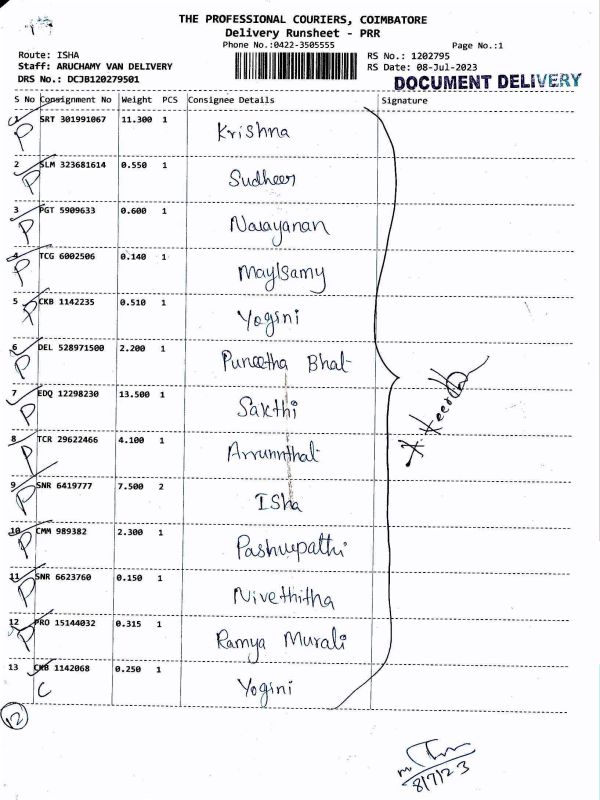 THE PROFESSIONAL COURIERS, COIMBATORE
Delivery Runsheet - PRR
Phone No.:0422-3505555 Page No.:1
Route: ISHA RS No.: 1202795
Staff: ARUCHAMY VAN DELIVERY RS Date: 08-Jul-2023
DRS No.: DCJB120279501 DOCUMENT DELIVERY
S No Consignment No Weight PCS Consignee Details Signature
1 SRT 301991067 11.300 1 Krishna
P
2 SLM 323681614 0.550 1 Sudheer
P
3 PGT 5909633 0.600 1 Narayanan
P
4 TCG 6002506 0.140 1 Maylsamy
P
5 CKB 1142235 0.510 1 Yogini
P
6 DEL 528971500 2.200 1 Puneetha Bhat
P
7 EDQ 12298230 13.500 1 Sakthi
P
8 TCR 29622466 4.100 1 Arrunnthat
P
9 SNR 6419777 7.500 2 ISha
P
10 CMM 989382 2.300 1 Pashupathi
P
11 SNR 6623760 0.150 1 Nivethitha
P
12 PRO 15144032 0.315 1 Ramya Murali
P
13 CKB 1142068 0.250 1 Yogini
C
12
8/7/23